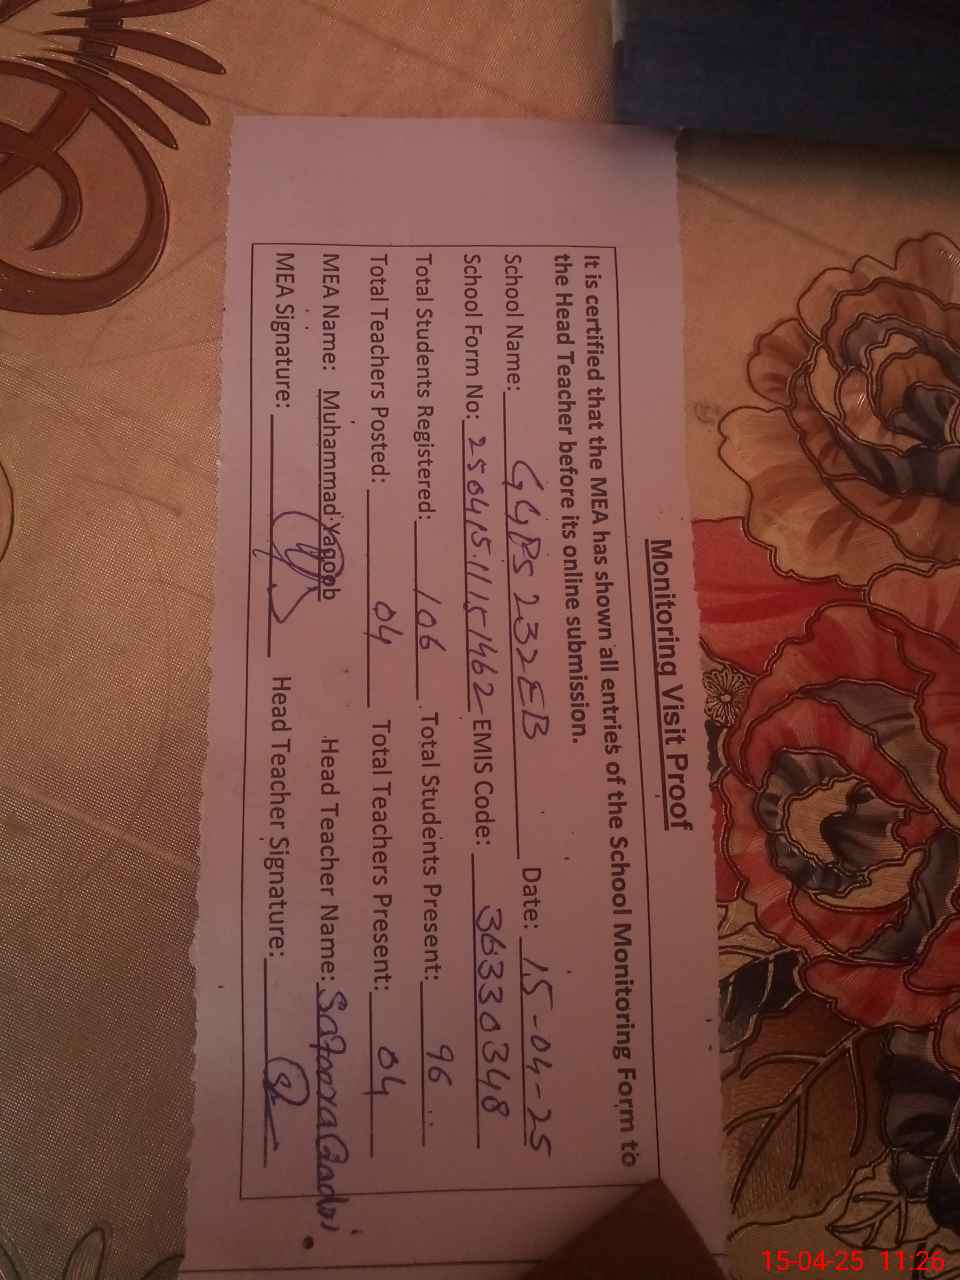 Monitoring Visit Proof
It is certified that the MEA has shown all entries of the School Monitoring Form to
the Head Teacher before its online submission.
School Name: GGPS 232EB Date: 15-04-25
School Form No: EMIS Code: 36330348
Total Students Registered: 106 Total Students Present: 96
Total Teachers Posted: 04 Total Teachers Present: 04
MEA Name: Muhammad Yaqoob Head Teacher Name:
MEA Signature: Head Teacher Signature:
15-04-25 11:26